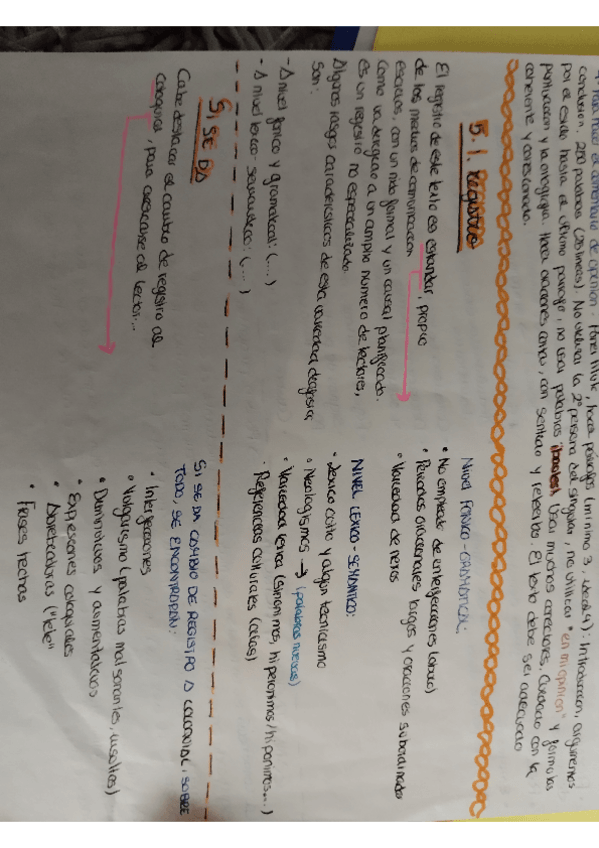 conclusión. 250 palabras (25 líneas). No utilizar la 2ª persona del singular, no utilizar "en mi opinión" y fórmulas
por el estilo hasta el último párrafo, no usar palabras Usar muchos conectores. Cuidado con la
puntuación y la ortografía. Hacer oraciones cortas, con sentido y releerlas. El texto debe ser adecuado
coherente y cohesionado.
5.1. Registro
El registro de este texto es estándar, propio
de los medios de comunicación
escritos, con un nivel formal y un causal planificado.
Como va dirigido a un amplio número de lectores,
es un registro no especializado.
Algunos rasgos característicos de esta variedad diafásica
son:
- A nivel fónico y gramatical: (...)
- A nivel léxico-semántico: (...)
NIVEL FÓNICO-GRAMATICAL:
• No empleado de interjecciones (abuso)
• Periodos oracionales largos y oraciones subordinadas
• Variedad de nexos
NIVEL LÉXICO-SEMÁNTICO:
• Léxico culto y algún tecnicismo
• Neologismos → (palabras nuevas)
• Variedad léxica (sinónimos, hiperónimos/hipónimos...)
• Referencias culturales (citas)
SI SE DA
Cabe destacar el cambio de registro al
coloquial, para acercarse al lector...
SI SE DA CAMBIO DE REGISTRO A COLOQUIAL, SOBRE
TODO, SE ENCONTRARÁN:
• Interjecciones
• Vulgarismo (palabras malsonantes, insultos)
• Diminutivos y aumentativos
• Expresiones coloquiales
• Abreviaturas ("tele")
• Frases hechas